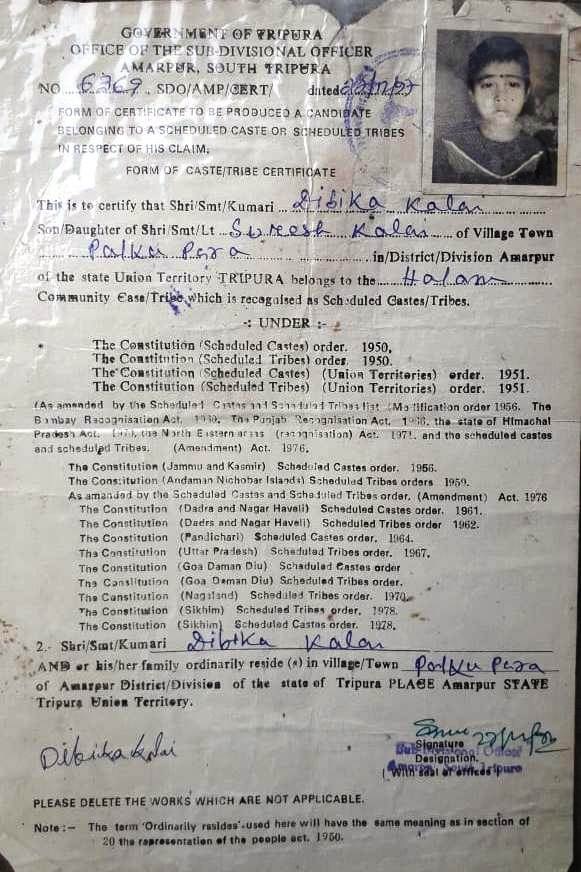 GOVERNMENT OF TRIPURA
OFFICE OF THE SUB-DIVISIONAL OFFICER
AMARPUR, SOUTH TRIPURA
NO ... 6369 .. SDO/AMP/CERT/ dated
FORM OF CERTIFICATE TO BE PRODUCED A CANDIDATE
BELONGING TO A SCHEDULED CASTE OR SCHEDULED TRIBES
IN RESPECT OF HIS CLAIM,
FORM OF CASTE/TRIBE CERTIFICATE
This is to certify that Shri/Smt/Kumari ... Dibika Kalai
Son/Daughter of Shri/Smt/Lt ... Suresh Kalai ... of Village Town
Palku Para ... in/District/Division Amarpur
of the state Union Territory TRIPURA belongs to the ... Halam
Community Case/Tribe which is recognised as Scheduled Castes/Tribes.
-: UNDER :-
The Constitution (Scheduled Castes) order. 1950.
The Constitution (Scheduled Tribes) order. 1950.
The Constitution (Scheduled Castes) (Union Territories) order. 1951.
The Constitution (Scheduled Tribes) (Union Territories) order. 1951.
(As amended by the Scheduled Castes and Scheduled Tribes list (Modification order 1956. The
Bombay Recognisation Act. The Punjab Recognisation Act. the state of Himachal
Pradesh Act. the North Eastern areas (recognisation) Act. 1971. and the scheduled castes
and scheduled Tribes. (Amendment) Act. 1976.
The Constitution (Jammu and Kasmir) Scheduled Castes order. 1956.
The Constitution (Andaman Nichobar Islands) Scheduled Tribes orders 1959.
As amended by the Scheduled Castas and Scheduled Tribes order. (Amendment) Act. 1976
The Constitution (Dadra and Nagar Haveli) Scheduled Castes order. 1961.
The Constitution (Dadra and Nagar Haveli) Scheduled Tribes order 1962.
The Constitution (Pandichari) Scheduled Castes order. 1964.
The Constitution (Uttar Pradesh) Scheduled Tribes order. 1967.
The Constitution (Goa Daman Diu) Scheduled Castes order
The Constitution (Goa Daman Diu) Scheduled Tribes order.
The Constitution (Nagaland) Scheduled Tribes order. 1970.
The Constitution (Sikhim) Scheduled Tribes order. 1978.
The Constitution (Sikhim) Scheduled Castes order. 1978.
2.- Shri/Smt/Kumari Dibika Kalai
AND or his/her family ordinarily reside (s) in village/Town Palku Para
of Amarpur District/Division of the state of Tripura PLACE Amarpur STATE
Tripura Union Territory.
Dibika Kalai
Signature
Sub-Divisional Officer
Designation.
Amarpur, South Tripura
(With seal of offices)
PLEASE DELETE THE WORKS WHICH ARE NOT APPLICABLE.
Note :- The term 'Ordinarily resides' used here will have the same meaning as in section of
20 the rapresentation of the people act. 1950.